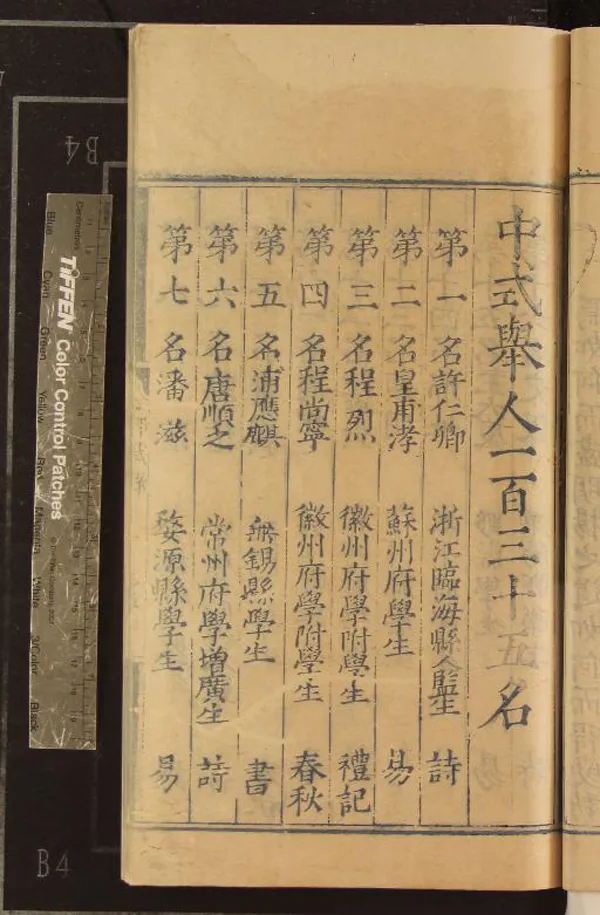 中式舉人一百三十五名
第一名許仁卿 浙江臨海縣人監生 詩
第二名皇甫涍 蘇州府學生 易
第三名程烈 徽州府學附學生 禮記
第四名程尚寧 徽州府學附學生 春秋
第五名浦應麒 無錫縣學生 書
第六名唐順之 常州府學增廣生 詩
第七名潘滋 婺源縣學生 易
B4
B4
TIFFEN Color Control Patches
Blue
Cyan
Green
Yellow
Red
Magenta
White
3/Color
Black
Centimetres